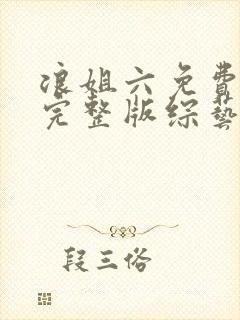 浪姐六免费
完整版综藝
段三俗